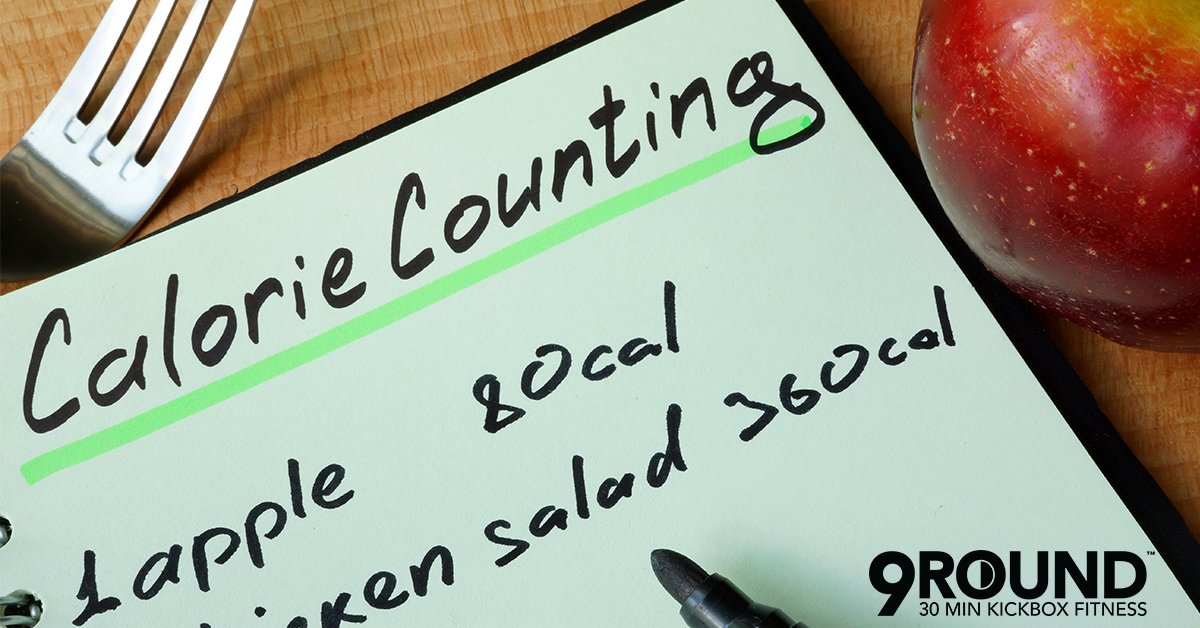 Calorie Counting
1 apple 80cal
chicken salad 360cal
9ROUND™
30 MIN KICKBOX FITNESS